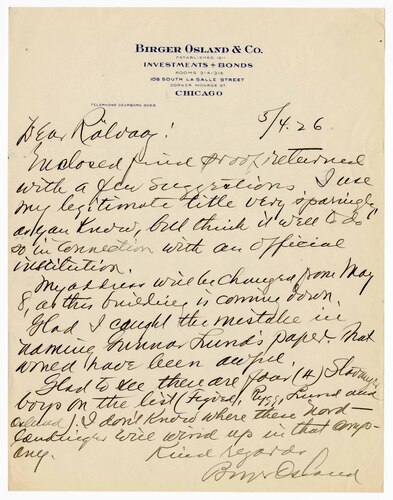 BIRGER OSLAND & CO.
ESTABLISHED 1911
INVESTMENTS + BONDS
ROOMS 314-315
108 SOUTH LA SALLE STREET
CORNER MONROE ST.
CHICAGO
TELEPHONE DEARBORN
5/4.26.
Dear Rölvaag!
Enclosed find proof returned
with a few suggestions I use
my legitimate title very sparingly
as you know, but think it well to do
so in connection with an official
institution.
My address will be changed from May
8, as this building is coming down.
Glad I caught the mistake in
naming Gunnar Lund's paper. That
would have been awful
Glad to see there are four (4) Stavanger
boys on the list (Tved, Rygg, Lund and
Osland). I don't know where these nord-
lændinger will wind up in that comp-
any.
Kind regards
Birger Osland